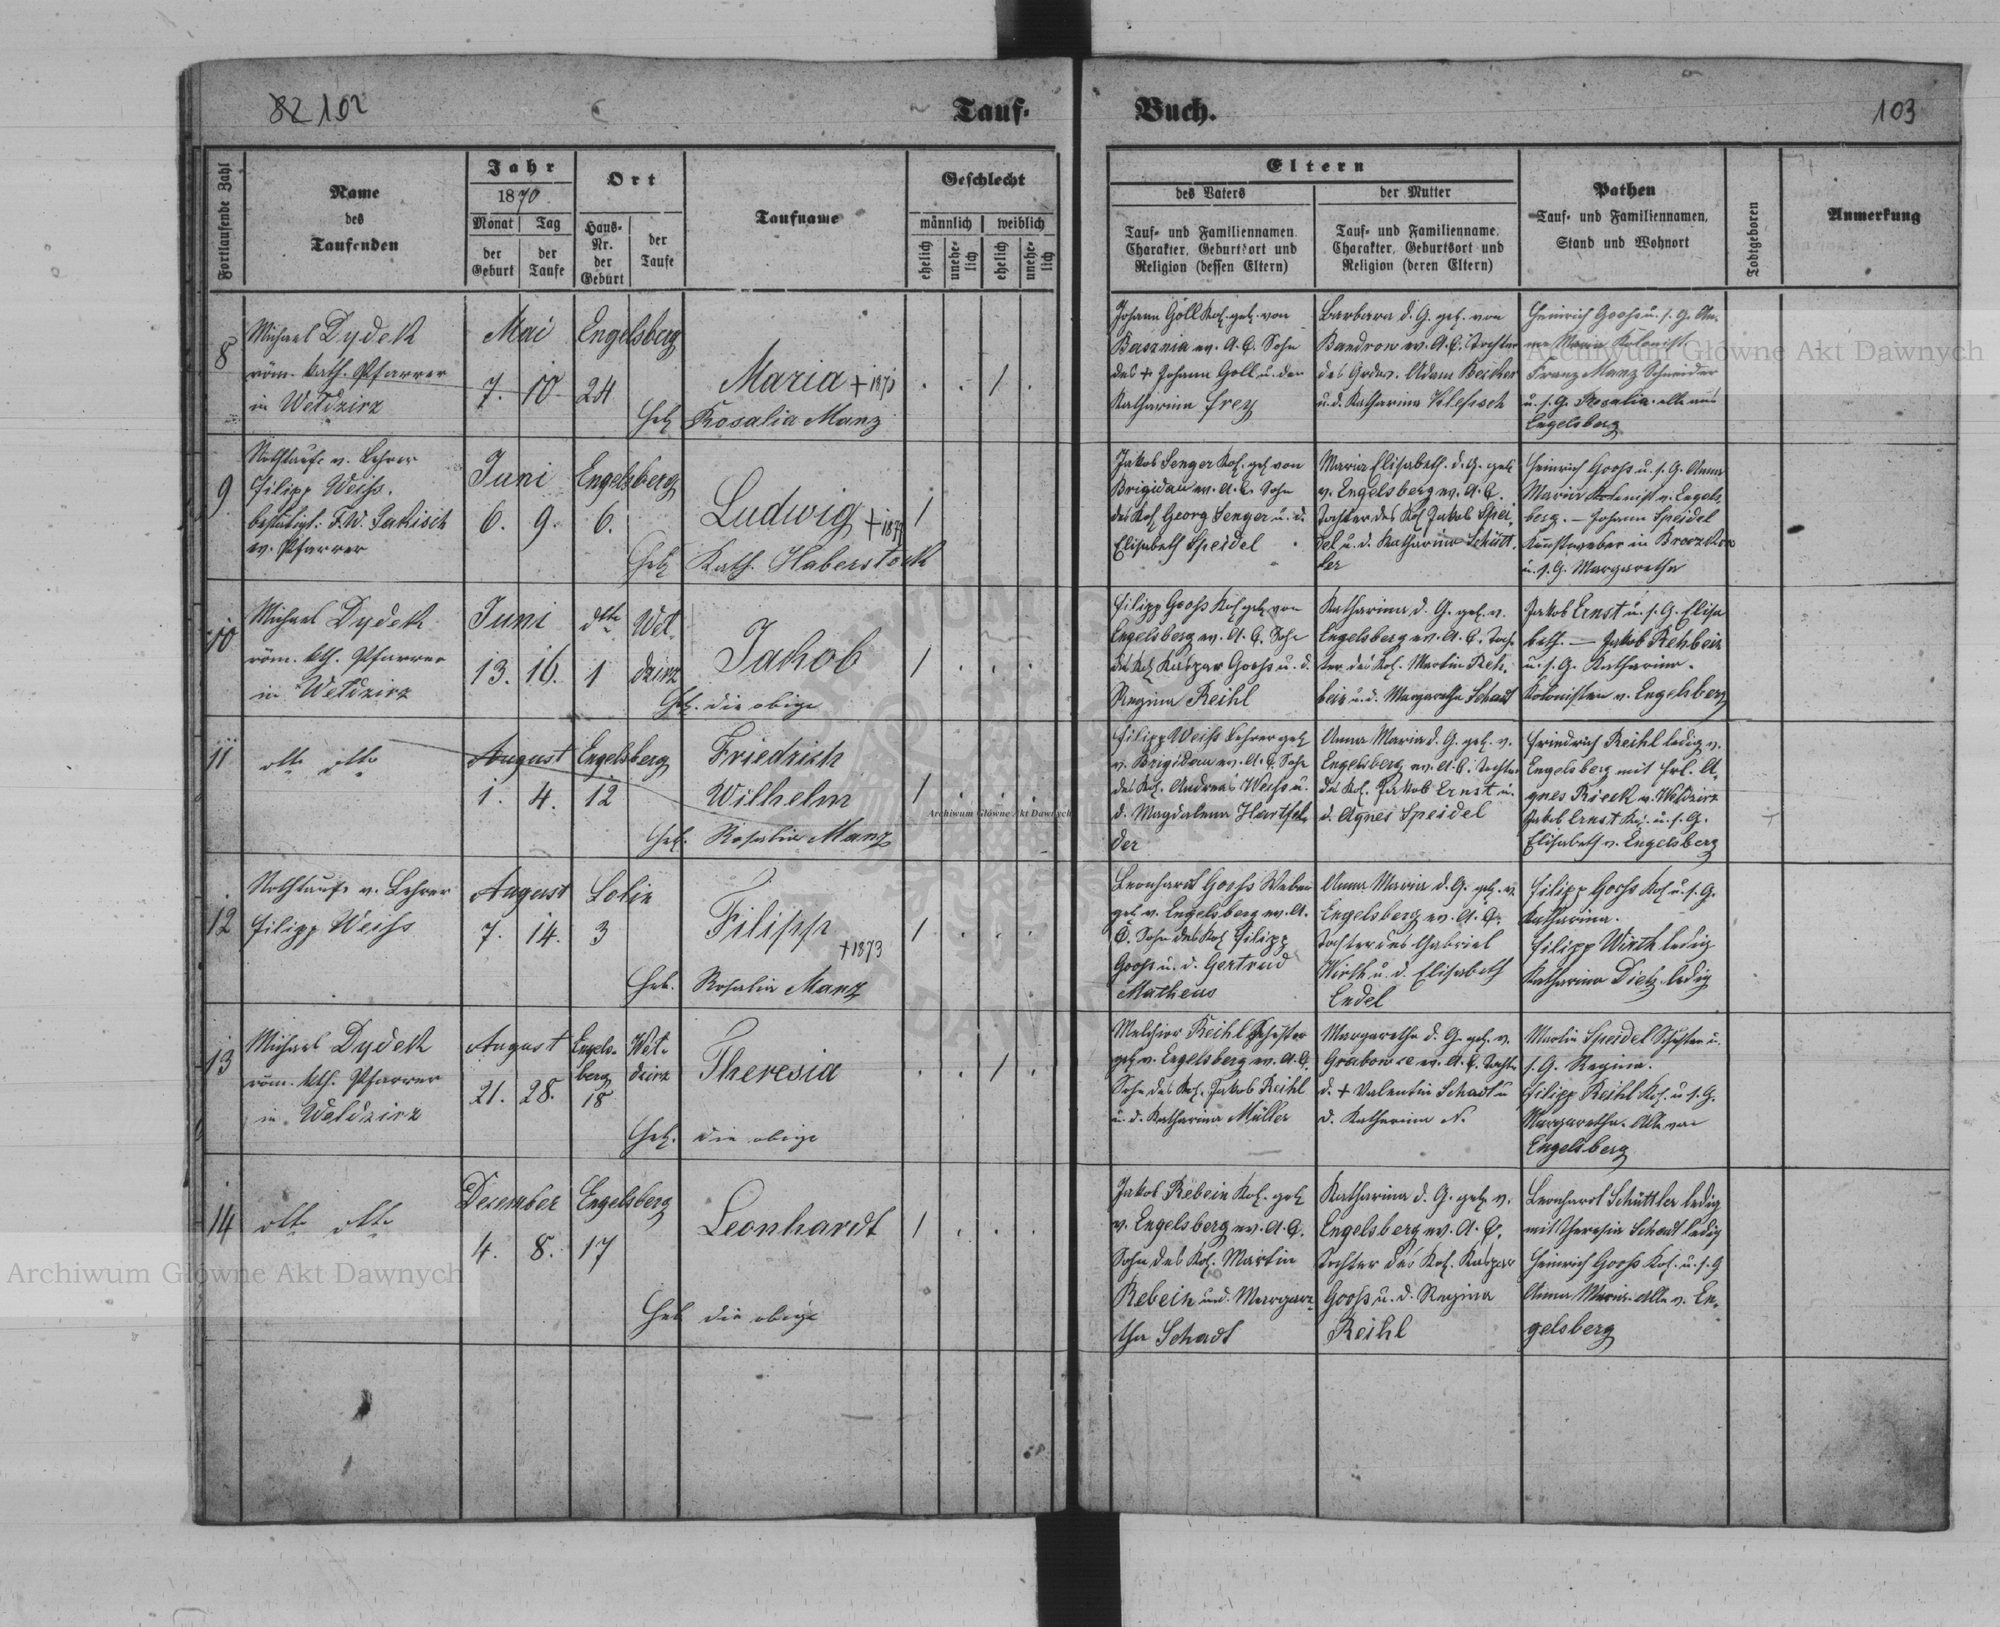 82 102
Tauf-
Buch.
103
Fortlaufende Zahl
Name
des
Taufenden
Jahr
1870
Monat
Tag
der
Geburt
der
Taufe
Ort
Haus-
Nr.
der
Geburt
der
Taufe
Taufname
Geschlecht
männlich
weiblich
ehelich
unehe-
lich
ehelich
unehe-
lich
Eltern
des Vaters
der Mutter
Tauf- und Familiennamen.
Charakter, Geburtsort und
Religion (dessen Eltern)
Tauf- und Familienname.
Charakter, Geburtsort und
Religion (deren Eltern)
Pathen
Tauf- und Familiennamen,
Stand und Wohnort
Todtgeboren
Anmerkung
8
Michael Dydek
röm. kath. Pfarrer
in Weldzirz
Mai
7. 10
Engelsberg
24
Maria + 187
Heb. Rosalia Manz
1
Johann Göll Kol. geb. von
ev. A. C. Sohn
des + Johann Göll u. der
Katharina Frey
Barbara d. G. geb. von
Bandrow ev. A. C. Tochter
des Adam Becker
u. d. Katharina
Heinrich Gooss u. s. G. An-
na Maria Kolonist.
Franz Manz Schneider
u. s. G. Rosalia alle aus
Engelsberg
9
Nothtaufe v. Lehrer
Filipp Weiss.
bestätigt: F. W. Jakisch
ev. Pfarrer
Juni
6. 9.
Engelsberg
6.
Ludwig + 187
Heb Kath. Haberstock
1
Jakob Senger Kol. geb von
Brigidau ev. A. C. Sohn
des Kol Georg Senger u. d.
Elisabeth Speidel
Maria Elisabeth. d. G. geb
v. Engelsberg ev. A. C.
Tochter des Kol Jakob Spei-
del u. d. Katharina Schütt-
ler
Heinrich Gooss u. s. G. Anna
Maria Kolonist v. Engels
berg. — Johann Speidel
Kunstweber in
u. s. G. Margaretha
10
Michael Dydek
röm. kth. Pfarrer
in Weldzirz
Juni
13. 16.
dtto
1
Wel-
dzirz
Jakob
Heb. die obige
1
Filipp Gooss Kol geb von
Engelsberg ev. A. C. Sohn
des Kol Kaspar Gooss u. d.
Regina Reihl
Katharina d. G. geb. v.
Engelsberg ev. A. C. Toch-
ter des Kol. Martin Reh-
bein u. d. Margaretha Schadt
Jakob Ernst u. s. G. Elisa
beth. — Jakob Rehbein
u. s. G. Katharina.
Kolonisten v. Engelsberg
11
dtto dtto
August
1. 4.
Engelsberg
12
Friedrich
Wilhelm
Heb. Rosalia Manz
1
Filipp Weiss Lehrer geb
v. Brigidau ev. A. C. Sohn
des Kol. Andreas Weiss u.
d. Magdalena Hartfel-
der
Anna Maria d. G. geb. v.
Engelsberg ev. A. C. Tochter
des Kol. Jakob Ernst u.
d. Agnes Speidel
Friedrich Reihl ledig v.
Engelsberg mit Frl. A-
gnes Rieck v. Weldzirz
Jakob Ernst Kol. u. s. G.
Elisabeth v. Engelsberg
12
Nothtaufe v. Lehrer
Filipp Weiss
August
7. 14.
3
Filipp
+ 1873
Heb. Rosalia Manz
1
Leonhardt Gooss Weber
geb v. Engelsberg ev. A.
C. Sohn des Kol Filipp
Gooss u. d. Gertrud
Matheus
Anna Maria d. G. geb. v.
Engelsberg ev. A. C.
Tochter des Gabriel
Wirth u. d. Elisabeth
Endel
Filipp Gooss Kol u. s. G.
Katharina.
Filipp Wirth ledig
Katharina Dietz ledig
13
Michael Dydek
röm. kth. Pfarrer
in Weldzirz
August
21. 28.
Engels-
berg
18
Wel-
dzirz
Theresia
Heb. die obige
1
Melchior Reihl Schuster
geb v. Engelsberg ev. A. C.
Sohn des Kol. Jakob Reihl
u. d. Katharina Müller
Margaretha d. G. geb. v.
Grabowce ev. A. C. Tochter
d. + Valentin Schadt u
d. Katharina N.
Martin Speidel Schuster u.
s. G. Regina.
Filipp Reihl Kol. u. s. G.
Margaretha. Alle von
Engelsberg
14
dtto dtto
December
4. 8.
Engelsberg
17
Leonhardt
Heb die obige
1
Jakob Rebein Kol. geb
v. Engelsberg ev. A. C.
Sohn des Kol. Martin
Rebein und. Margare-
tha Schadt
Katharina d. G. geb v.
Engelsberg ev. A. C.
Tochter des Kol. Kaspar
Gooss u. d. Regina
Reihl
Leonhardt Schüttler ledig
mit Theresia Schadt ledig
Heinrich Gooss Kol. u. s. G
Anna Maria. Alle v. En-
gelsberg
Archiwum Główne Akt Dawnych
Archiwum Główne Akt Dawnych
Archiwum Główne Akt Dawnych